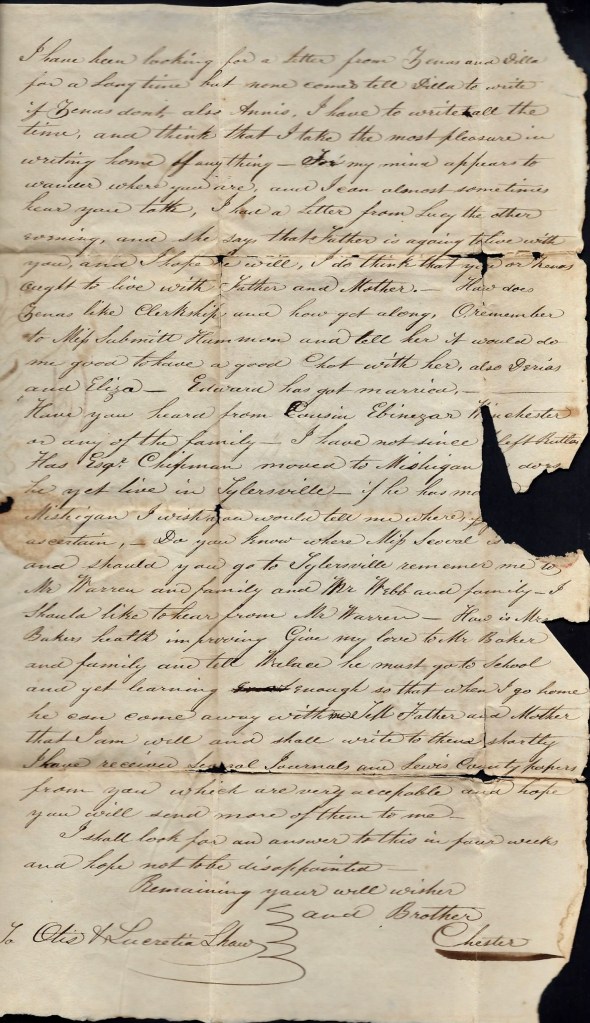 I have been looking for a letter from Zenas and Dilla
for a long time but none comes tell Dilla to write
if Zenas dont, also Annis, I have to write all the
time, and think that I take the most pleasure in
writing home of anything — For my mind appears to
wander where you are, and I can almost sometimes
hear you talk, I had a Letter from Lucy the other
evening, and she says that Father is agoing to live with
you, and I hope he will, I do think that you or Zenas
ought to live with Father and Mother. — How does
Zenas like Clerkship and how got along, O remember
to Miss Submitt Hammon and tell her it would do
me good to have a good Chat with her, also Derias
and Eliza — Edward has got married, —
Have you heard from Cousin Ebinezar Winchester
or any of the family — I have not since left
Has Esqr. Chipman moved to Mishigan or does
he yet live in Tylersville — if he has
Mishigan I wish you would tell me where,
ascertain, — Do you know where Miss is
and should you go to Tylersville rememer me to
Mr Warren and family and Mr Webb and family — I
should like to hear from Mr Warren — How is Mrs
Bakers health improving Give my love to Mr Baker
and family and tell Walace he must go to School
and get learning enough so that when I go home
he can come away with me Tell Father and Mother
that I am well and shall write to them shortly
I have received Several Journals and Lewis County papers
from you which are very acceptable and hope
you will send more of them to me —
I shall look for an answer to this in four weeks
and hope not to be disappointed —
Remaining your will wisher
and Brother
Chester
To Otis & Lucretia Shaw